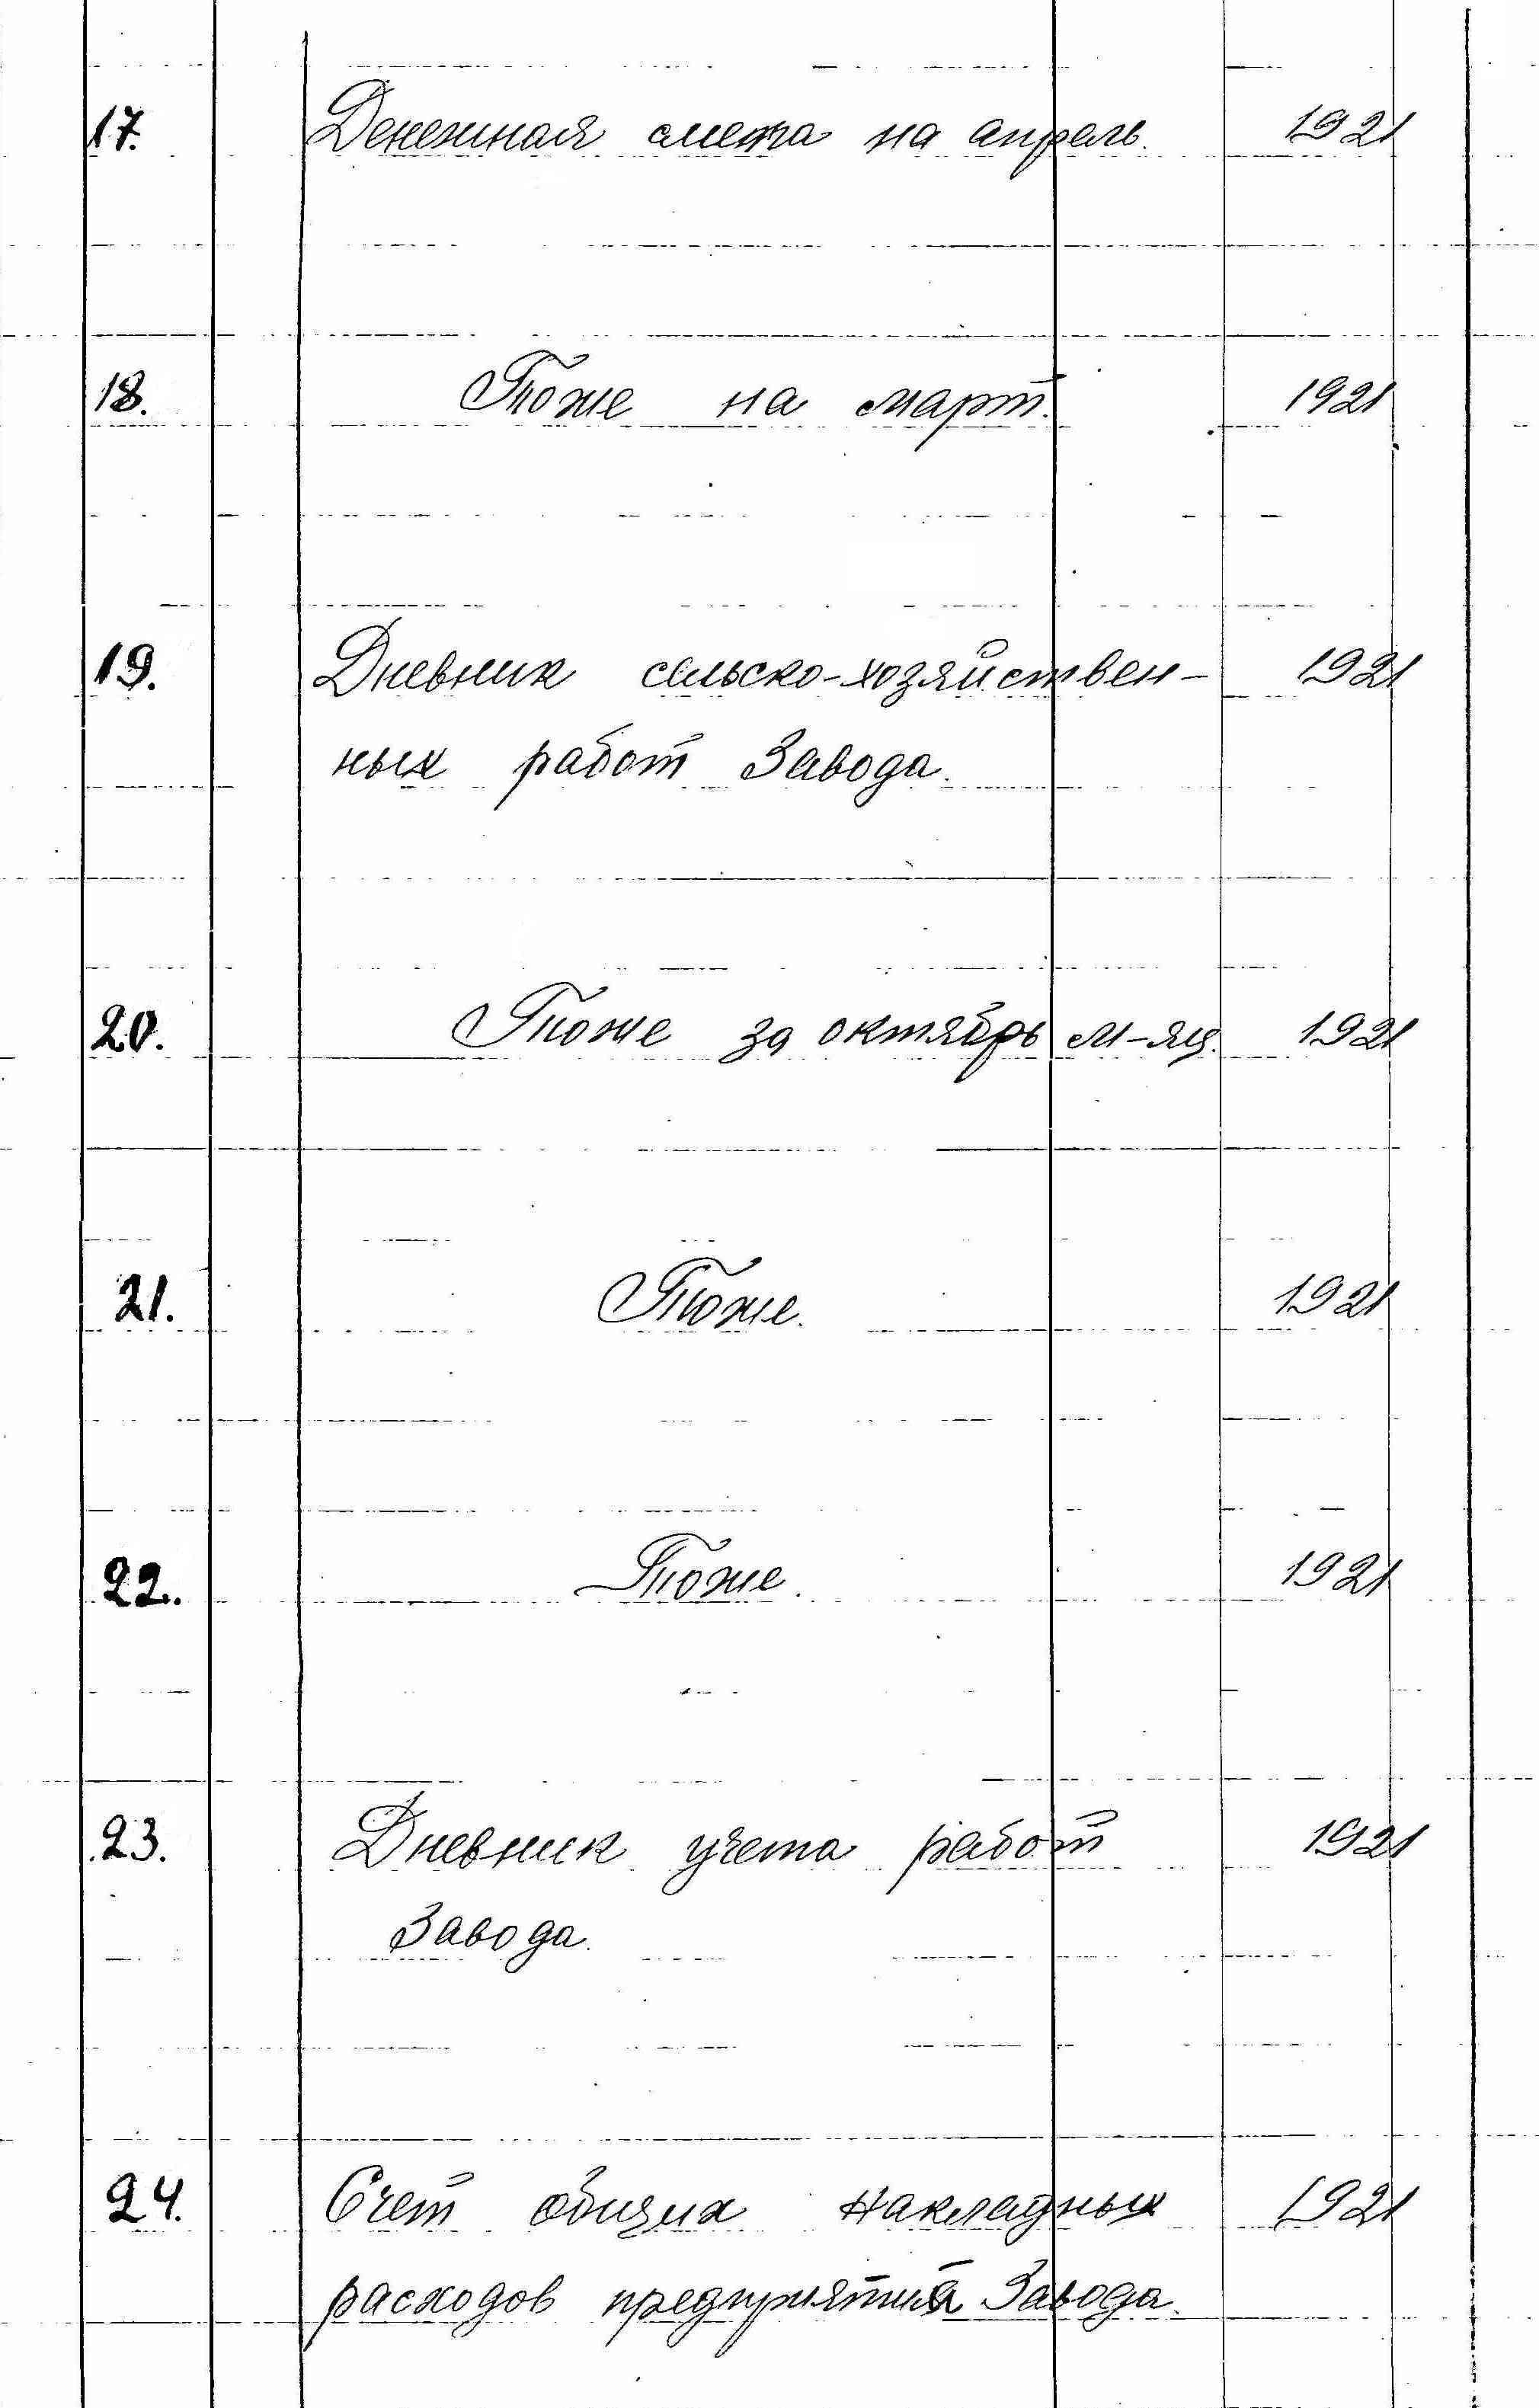 17. Денежная смета на апрель. 1921
18. Тоже на март. 1921
19. Дневник сельско-хозяйствен- 1921
ных работ Завода.
20. Тоже за октябрь м-яц. 1921
21. Тоже. 1921
22. Тоже. 1921
23. Дневник учета работ 1921
Завода.
24. Счет общих накладных 1921
расходов предприятия Завода.